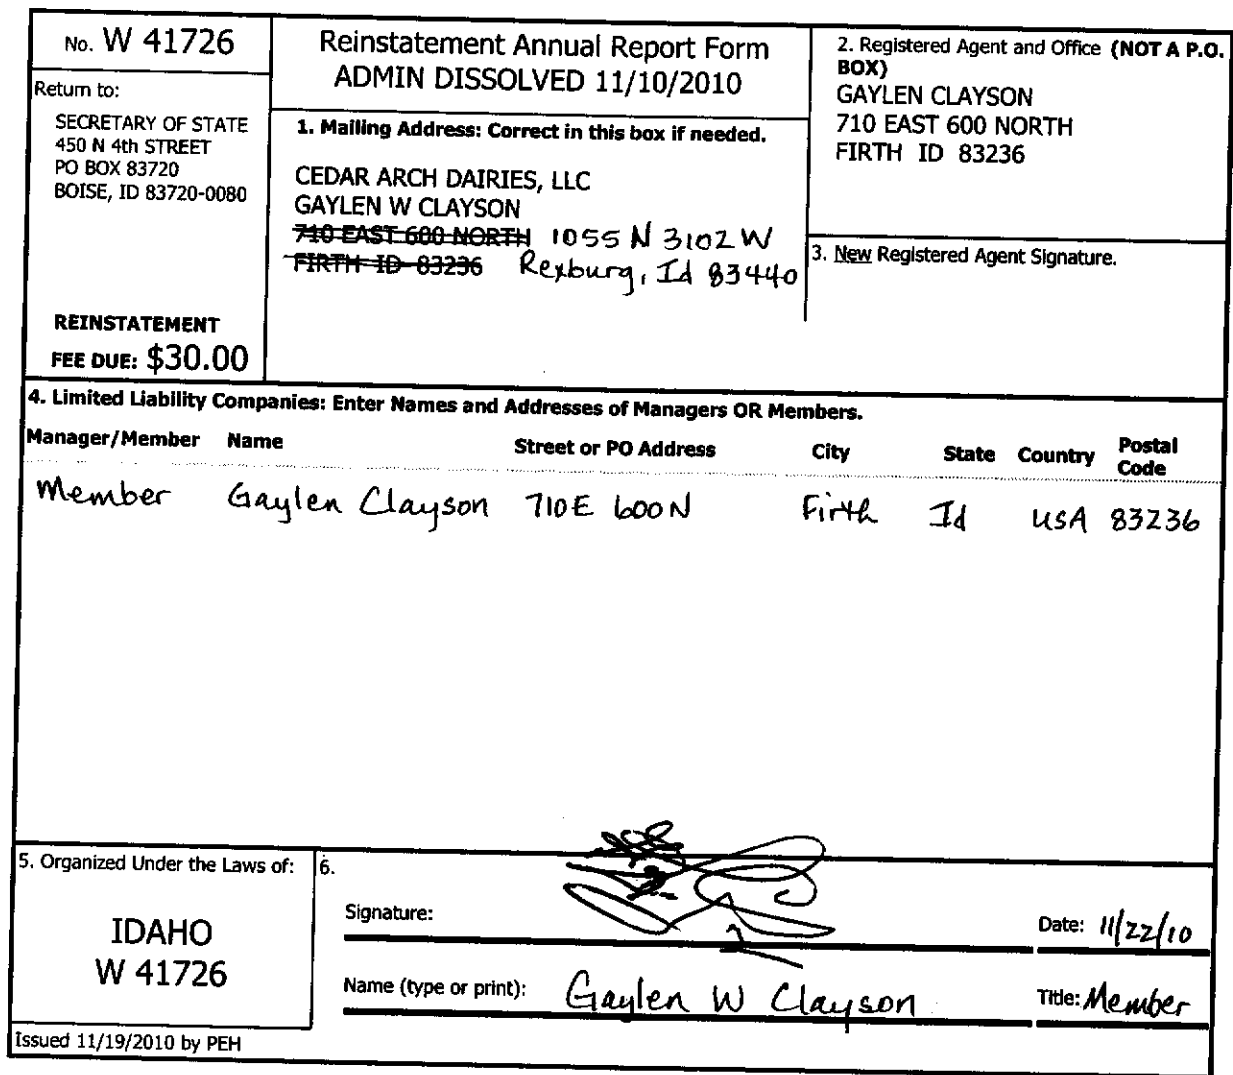 No. W 41726
Return to:
SECRETARY OF STATE
450 N 4th STREET
PO BOX 83720
BOISE, ID 83720-0080
REINSTATEMENT
FEE DUE: $30.00
Reinstatement Annual Report Form
ADMIN DISSOLVED 11/10/2010
1. Mailing Address: Correct in this box if needed.
CEDAR ARCH DAIRIES, LLC
GAYLEN W CLAYSON
710 EAST 600 NORTH 1055 N 3102 W
FIRTH ID 83236 Rexburg, Id 83440
2. Registered Agent and Office (NOT A P.O.
BOX)
GAYLEN CLAYSON
710 EAST 600 NORTH
FIRTH ID 83236
3. New Registered Agent Signature.
4. Limited Liability Companies: Enter Names and Addresses of Managers OR Members.
Manager/Member Name Street or PO Address City State Country Postal Code
Member Gaylen Clayson 710 E 600 N Firth Id USA 83236
5. Organized Under the Laws of:
IDAHO
W 41726
6.
Signature: Date: 11/22/10
Name (type or print): Gaylen W Clayson Title: Member
Issued 11/19/2010 by PEH